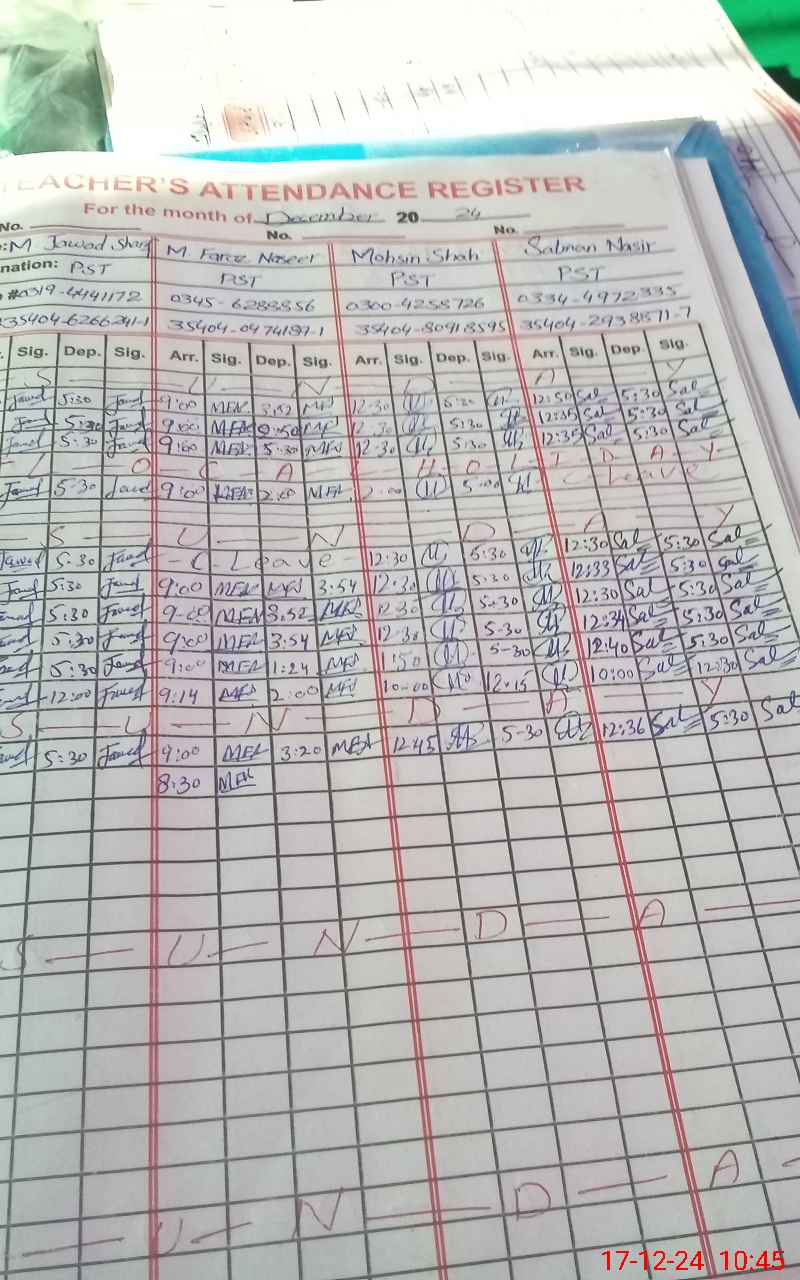 TEACHER'S ATTENDANCE REGISTER
For the month of December 20 24
No. No. No.
M Jawad M. Faraz Naseer Mohsin Shah Salman Nasir
nation: PST PST PST PST
#0319-4441172 0345-6288856 0300-4258726 0334-4972335
35404-6266241-1 35404-0474187-1 35404-80918595 35404-2938571-7
Sig. Dep. Sig. Arr. Sig. Dep. Sig. Arr. Sig. Dep. Sig. Arr. Sig. Dep. Sig.
S U N D A Y
5:30 9:00 12:30 12:50 Sal 5:30 Sal
5:30 9:00 12:30 5:30 12:35 Sal 5:30 Sal
5:30 9:00 5:30 12:30 5:30 12:35 Sal 5:30 Sal
L O C A L H O L I D A Y
5:30 9:00 2:00 2:00 5:00 Leave
S U N D A Y
Jawad 5:30 Jawad C. Leave 12:30 5:30 12:30 Sal 5:30 Sal
5:30 9:00 3:54 12:30 5:30 12:33 Sal 5:30 Sal
5:30 9:00 3:52 12:30 5:30 12:30 Sal 5:30 Sal
5:30 9:00 3:54 12:30 5-30 12:34 Sal 5:30 Sal
5:30 9:00 1:24 1:50 5-30 12:40 Sal 5:30 Sal
12:00 9:14 2:00 10:00 12:15 10:00 Sal 12:30 Sal
S U N D A Y
5:30 9:00 3:20 12:45 5-30 12:36 Sal 5:30 Sal
8:30
S U N D A
U N D A
17-12-24 10:45